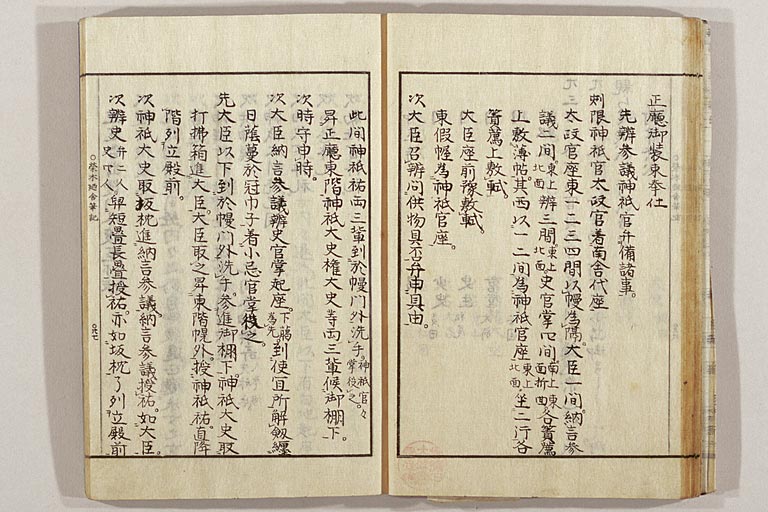 正廳御装束奉仕
先辨参議神祇官弁備諸事。
刻限神祇官太政官着南舎代座
太政官座東一二三四間以幔為隔。大臣一間。納言参
議二間東上北面辨三間東上北面史官掌四間南上東面折東上北面各簀薦
上敷薄帖其西以一二間為神祇官座東上北面坐二行各
簀薦上敷軾。
大臣座前豫敷軾。
東假幄為神祇官座。
次大臣召辨問供物具否弁申具由。
此间神祇祐両三輩到於幔門外洗手。神祇官々掌役之。
次時守申時。
昇正廳東階神祇大史権大史等両三輩候御棚下。
次大臣納言参議辨史官掌起座。下﨟為先。到便宜所解劔纒
日蔭蔓於冠巾子着小忌官掌役之。
先大臣以下到於幔門外洗手。参進御棚下。神祇大史取
打拂筥進大臣大臣取之昇東階幌外。授神祇祐。直降
階列立殿前。
次神祇大史取坂枕進納言参議納言参議授祐。如大臣。
次辨史弁二人史四人舁短疊長疊授祐。亦如坂枕了列立殿前